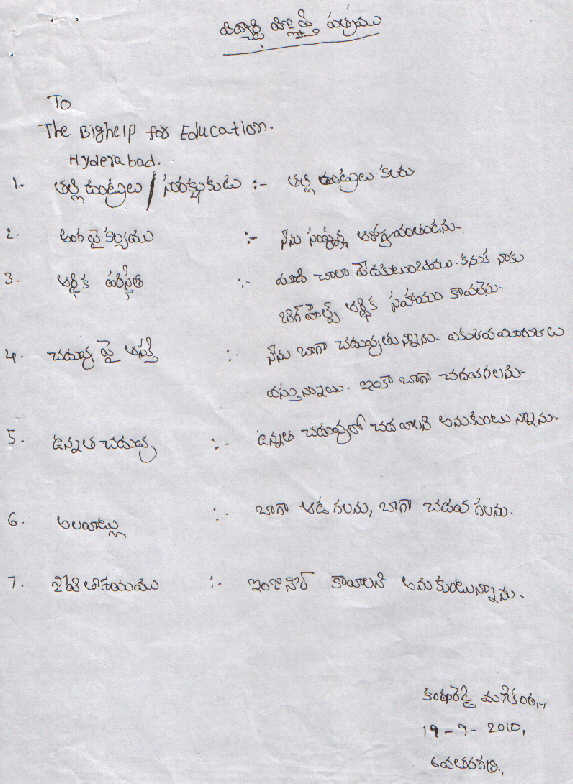 విద్యార్థి పత్రము
To
The Bighelp for Education.
Hyderabad.
1. తల్లిదండ్రులు / సంరక్షకుడు :- తల్లి దండ్రులు కలరు
2. అంగవైకల్యము :- నేను సంపూర్ణ ఆరోగ్యవంతుడను.
3. ఆర్థిక పరిస్థితి :- మాది చాలా పేదకుటుంబము. కనుక నాకు
బిగ్ హెల్ప్ ఆర్థిక సహాయం కావలెను.
4. చదువు పై ఆసక్తి : నేను బాగా చదువుతున్నాను.
వస్తున్నాయి. ఇంకా బాగా చదవగలను.
5. ఉన్నత చదువు :- ఉన్నత చదువులో చదవాలని అనుకుంటున్నాను.
6. అలవాట్లు :- బాగా ఆడగలను, బాగా చదువగలను.
7. ఆశయము :- ఇంజనీర్ కావాలని అనుకుంటున్నాను.
మణికంఠ,
19-9-2010,